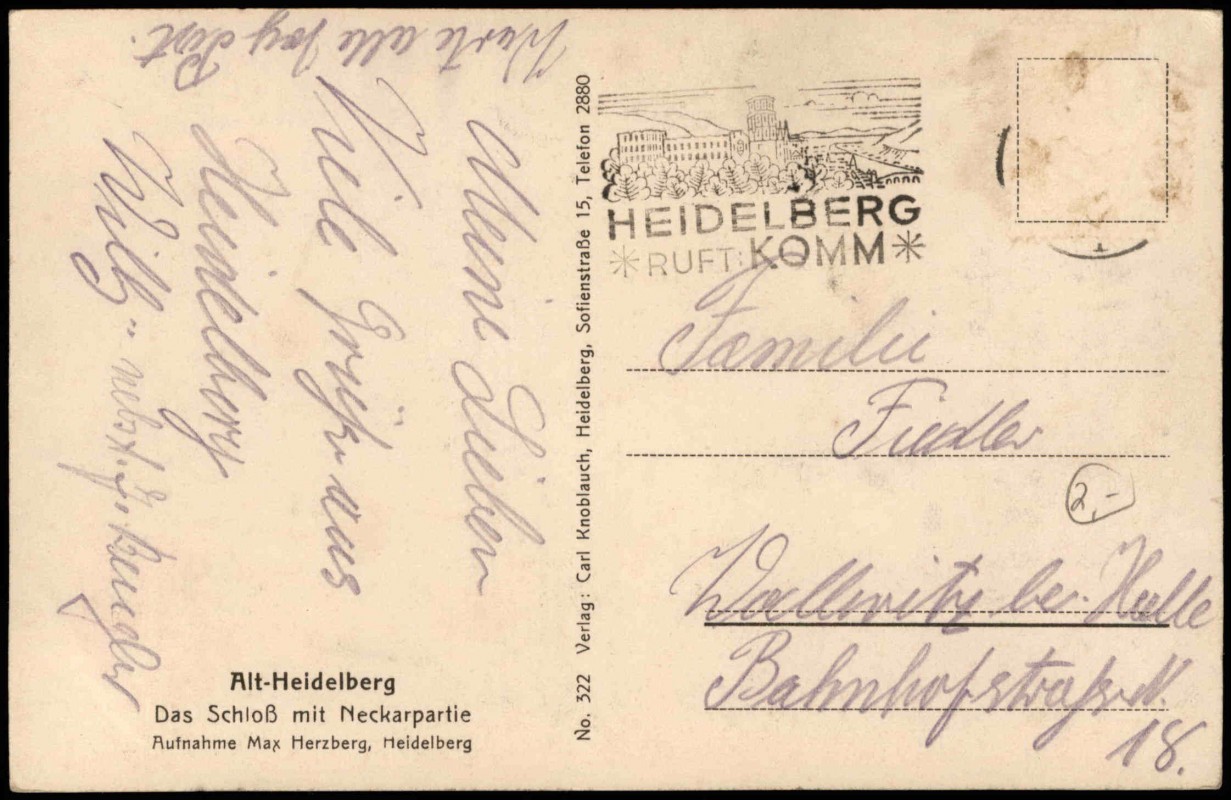 Meine Lieben
Viele Grüße aus
Heidelberg
Willy
Warte alle Tag Post.
Alt-Heidelberg
Das Schloß mit Neckarpartie
Aufnahme Max Herzberg, Heidelberg
No. 322 Verlag: Carl Knoblauch, Heidelberg, Sofienstraße 15, Telefon 2880
HEIDELBERG
RUFT: KOMM
Familie
Fiedler
2,-
Wallwitz bei Halle
Bahnhofstraße N.
18.